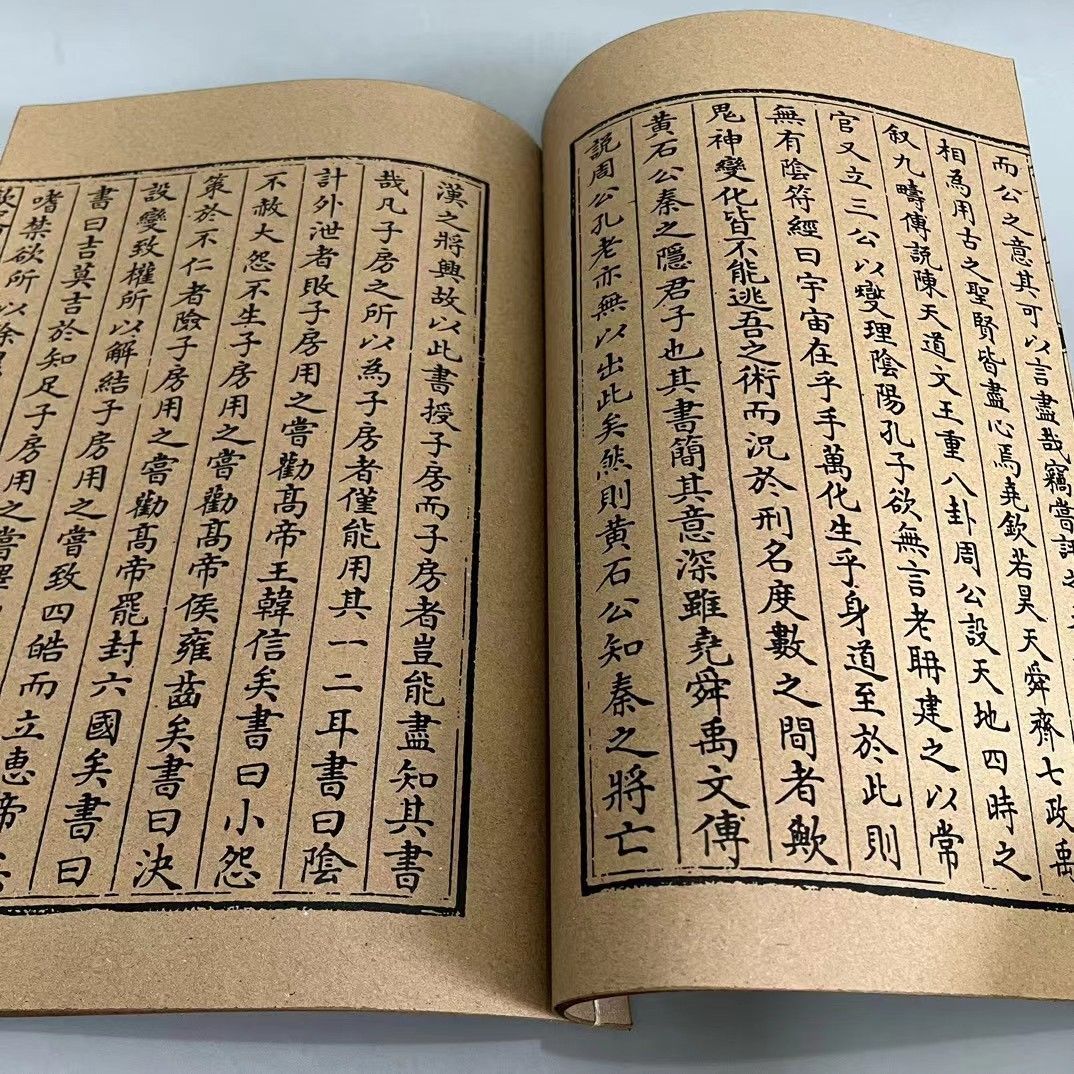 而公之意其可以言盡哉竊嘗評之
相為用古之聖賢皆盡心焉堯欽若昊天舜齊七政禹
叙九疇傳説陳天道文王重八卦周公設天地四時之
官又立三公以燮理陰陽孔子欲無言老聃建之以常
無有陰符經曰宇宙在乎手萬化生乎身道至於此則
鬼神變化皆不能逃吾之術而況於刑名度數之間者歟
黄石公秦之隱君子也其書簡其意深雖堯舜禹文傅
説周公孔老亦無以出此矣然則黄石公知秦之將亡
漢之將興故以此書授子房而子房者豈能盡知其書
哉凡子房之所以為子房者僅能用其一二耳書曰陰
計外泄者敗子房用之嘗勸髙帝王韓信矣書曰小怨
不赦大怨不生子房用之嘗勸髙帝侯雍齒矣書曰決
策於不仁者險子房用之嘗勸髙帝罷封六國矣書曰
設變致權所以解結子房用之嘗致四皓而立恵帝
書曰吉莫吉於知足子房用之嘗擇
嗜禁欲所以除